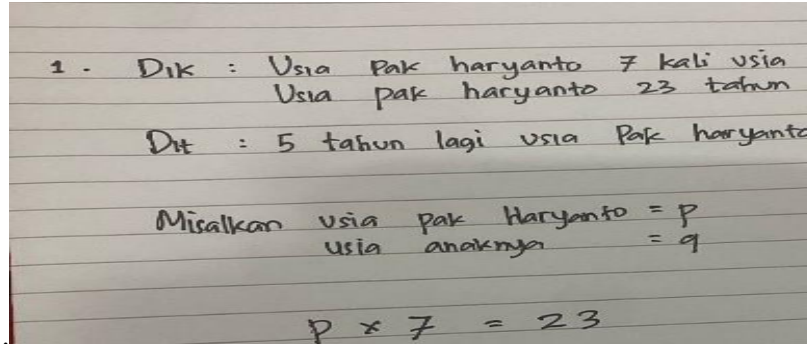 1. Dik : Usia Pak haryanto 7 kali usia
Usia pak haryanto 23 tahun
Dit : 5 tahun lagi usia Pak haryanto
Misalkan usia pak Haryanto = p
usia anaknya = q
p × 7 = 23